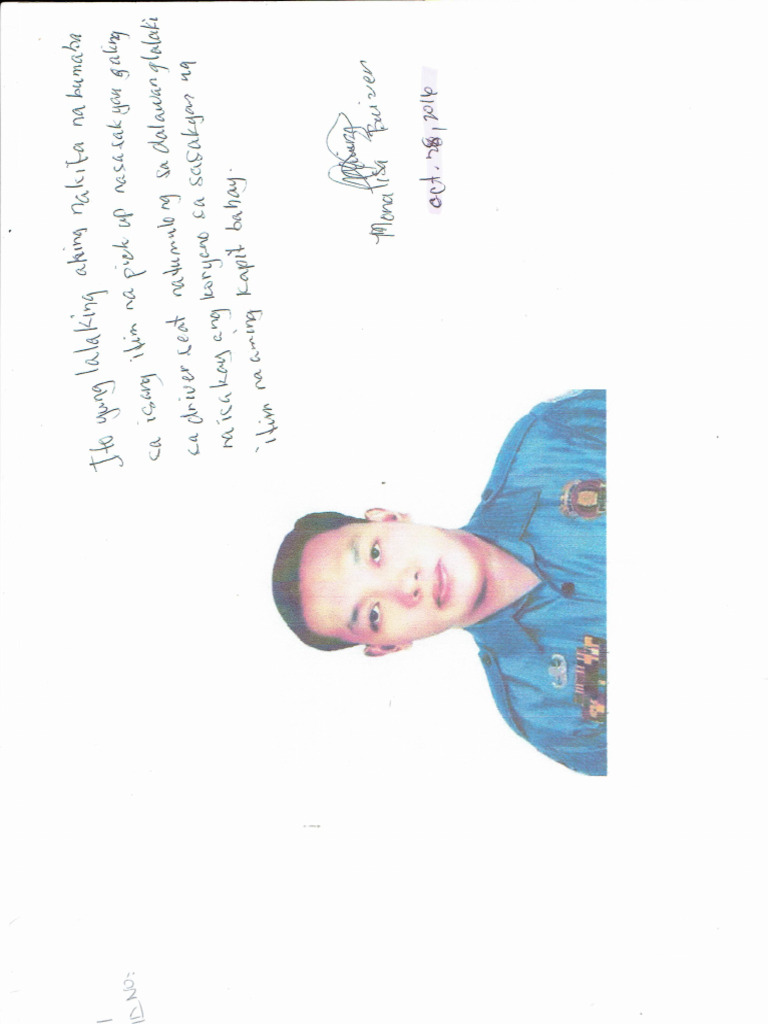 Ito yung lalaking aking nakita na bumaba
sa isang itim na pick up nasasakyan galing
sa driver seat natumulong sa dalawang lalaki
na isakay ang koryano sa sasakyan ng
itim na aming kapit bahay.
Mona lisa
oct. 28, 2016
ID NO: